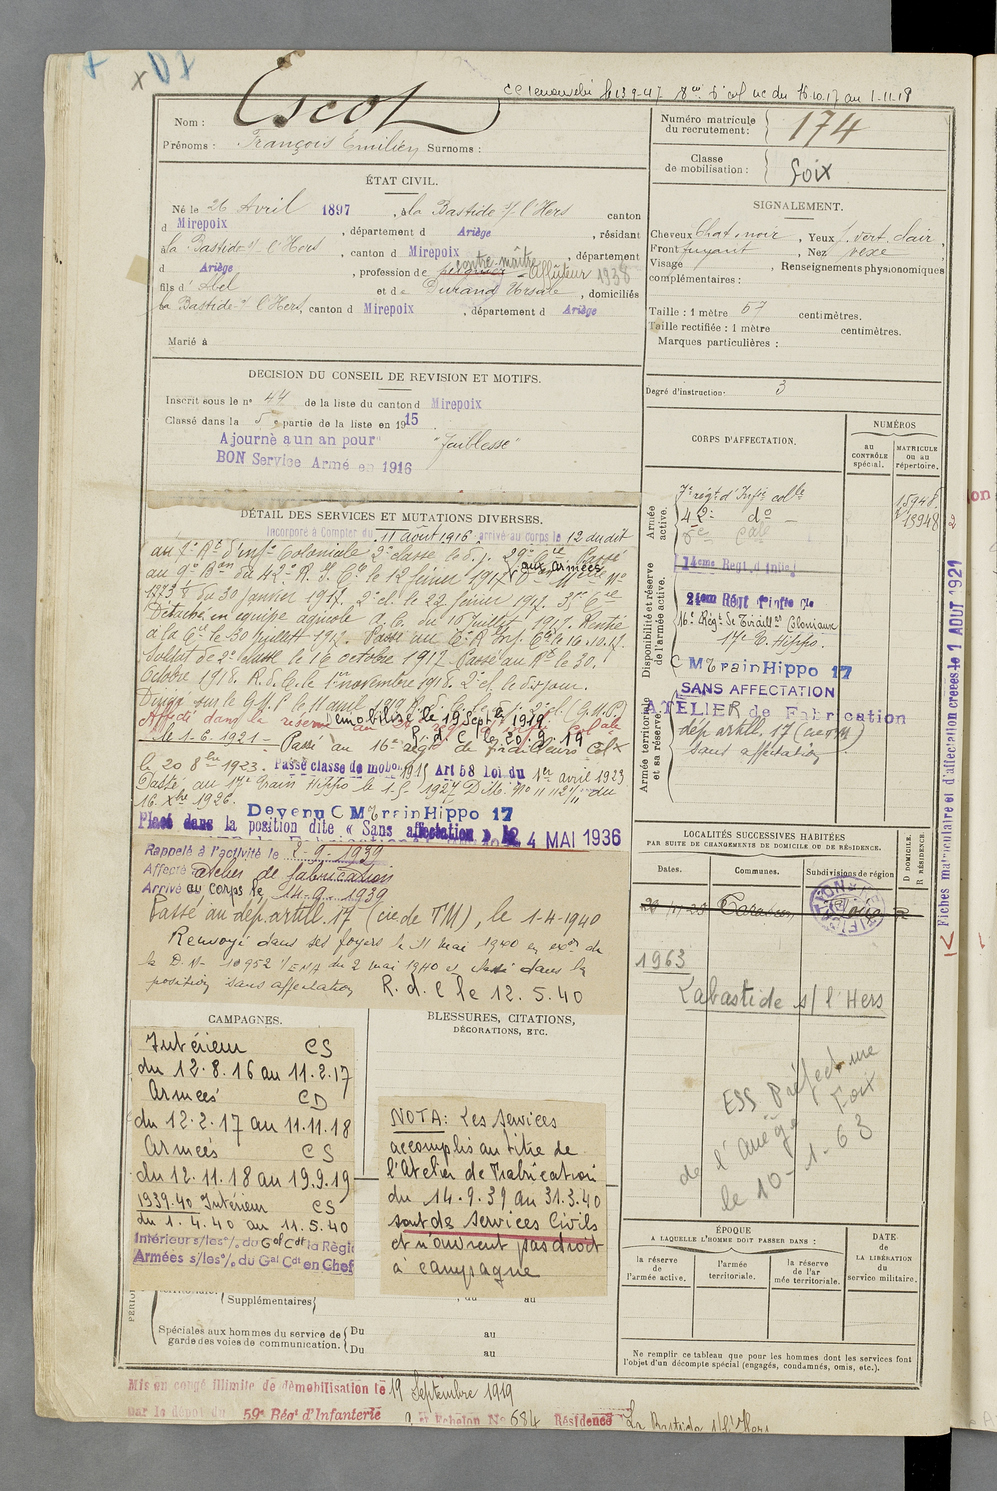 cc renouvelé le 13.9.47
Escot
Nom :
Prénoms : François Emilien Surnoms :
Numéro matricule
du recrutement : 174
Classe
de mobilisation : Foix
ÉTAT CIVIL.
Né le 26 Avril 1897, à la Bastide s/ l'Hers canton
d Mirepoix, département d Ariège, résidant
à la Bastide s/ l'Hers, canton d Mirepoix, département
contre-maître
d Ariège, profession de Affûteur 1938
fils d' Abel et de Durand Ursule, domiciliés
la Bastide s/ l'Hers, canton d Mirepoix, département d Ariège
Marié à
SIGNALEMENT.
Cheveux chat. noir, Yeux j. vert clair,
Front fuyant, Nez vexe
Visage Renseignements physionomiques
complémentaires :
Taille : 1 mètre 57 centimètres.
Taille rectifiée : 1 mètre centimètres.
Marques particulières :
Degré d'instruction : 3
DECISION DU CONSEIL DE REVISION ET MOTIFS.
Inscrit sous le n° 44 de la liste du canton d Mirepoix
Classé dans la 5e partie de la liste en 1915
Ajourné a un an pour "faiblesse"
BON Service Armé en 1916
CORPS D'AFFECTATION.
NUMÉROS
AU CONTRÔLE spécial.
MATRICULE ou au répertoire.
Armée active.
7e régt d'Infie colle
42e do
14eme Regt. d'Infie
Disponibilité et réserve
de l'armée active.
21em Régt d'infie Cle
16e Régt de Tirailrs Coloniaux
17e E. Hippo.
C M Train Hippo 17
SANS AFFECTATION
Armée territoriale
et sa réserve.
ATELIER de Fabrication
dép artill. 17 (cie TM)
sans affectation
DÉTAIL DES SERVICES ET MUTATIONS DIVERSES.
Incorporé à Compter du 11 août 1916 arrivé au corps le 12 dudit
au 7e Rt d'Infie Coloniale 2e classe le d. j. 29e Cie Passé
aux armées
au 9e Bon du 42e R. I. Cl le 12 février 1917
1273 du 30 janvier 1917. 2e cl. le 22 février 1917. 35e Cie
Détaché en équipe agricole du 10 juillet 1917. Rentré
à la Cie le 30 juillet 1917. Passé au 6e R. Inf. Cle le 16.10.17.
Soldat de 2e classe le 16 octobre 1917. Passé au Rt le 30
Octobre 1918. R. d. C. le 1er novembre 1918. 2e cl. le dit jour.
Affecté dans la réserve
Démobilisé le 19 Septe 1919
R. d. C le 20.9.19
le 1.6.1921 Passé au 16e régt de tirailleurs Cx
le 20 8bre 1923. Passé classe de mobon 1915 Art 58 Loi du 1er avril 1923
Passé au 17e Train Hippo le 1.5.1927 du
16 Xbre 1926.
Devenu C M Train Hippo 17
Placé dans la position dite « Sans affectation » le 4 MAI 1936
Rappelé à l'activité le 2-9-1939
Affecté atelier de fabrication
Arrivé au corps le 14-9-1939
Passé au dép. artill. 17 (cie de TM), le 1-4-1940
Renvoyé dans ses foyers le 11 mai 1940 en exon de
la D.M. 10952 1/EMA du 2 mai 1940 et classé dans la
position sans affectation R. d. C le 12.5.40
LOCALITÉS SUCCESSIVES HABITÉES
PAR SUITE DE CHANGEMENTS DE DOMICILE OU DE RÉSIDENCE.
Dates. Communes. Subdivisions de région
D DOMICILE. R RÉSIDENCE.
Tarascon Foix R
1963
Labastide s/ l'Hers
ESS Préfecture
de l'Ariège Foix
le 10-1-63
CAMPAGNES.
Intérieur CS
du 12.8.16 au 11.2.17
Armées CD
du 12.2.17 au 11.11.18
Armées CS
du 12.11.18 au 19.9.19
1939.40 Intérieur CS
du 1.4.40 au 11.5.40
Intérieur s/les°/. du Gal Cdt la Régi
Armées s/les°/. du Gal Cdt en Chef
BLESSURES, CITATIONS,
DÉCORATIONS, ETC.
NOTA: Les services
accomplis au titre de
l'Atelier de Fabrication
du 14.9.39 au 31.3.40
sont des services Civils
et n'ouvrent pas droit
à campagne
Supplémentaires
du au
Spéciales aux hommes du service de
garde des voies de communication.
Du au
Du au
ÉPOQUE
A LAQUELLE L'HOMME DOIT PASSER DANS :
la réserve de l'armée active.
l'armée territoriale.
la réserve de l'armée territoriale.
DATE DE LA LIBÉRATION du service militaire.
Ne remplir ce tableau que pour les hommes dont les services font
l'objet d'un décompte spécial (engagés, condamnés, omis, etc.).
Mis en congé illimité de démobilisation le 19 Septembre 1919
par le dépôt du 59e Régt d'Infanterie Echelon No 684 Résidence La Bastide s/l'Hers
Fiches matriculaire et d'affectation créées le 1 AOUT 1921